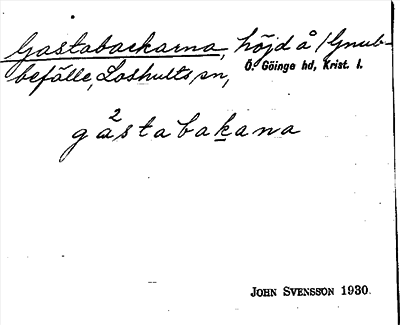 Gastabackarna, höjd å / Gnub-
befälle, Loshults sn,
Ö. Göinge hd, Krist. l.
2
gastabakana
JOHN SVENSSON 1930.